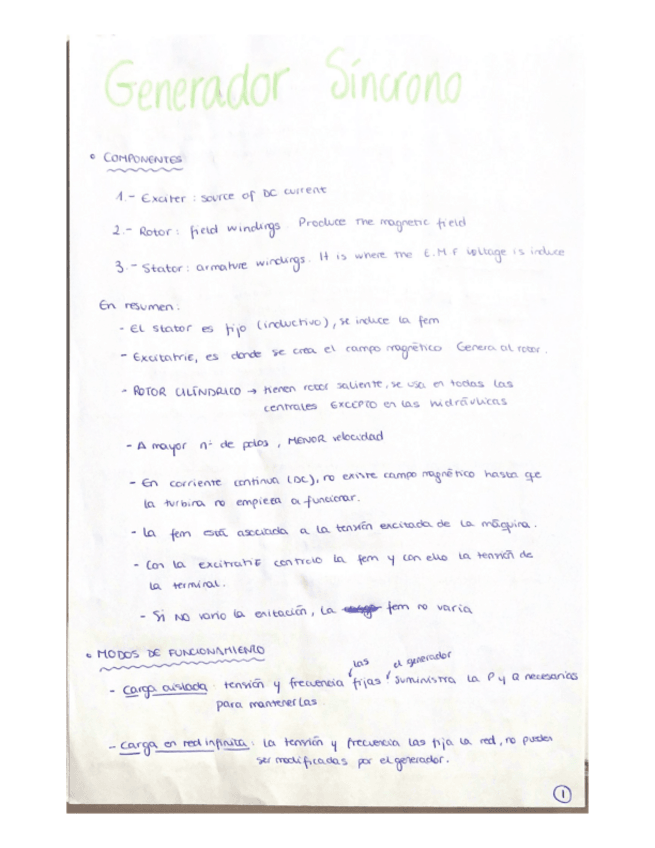 Generador Síncrono
• COMPONENTES
1.- Exciter : source of DC current
2.- Rotor : field windings. Produce the magnetic field
3.- Stator : armature windings. It is where the E.M.F voltage is induce
En resumen:
- El stator es fijo (inductivo), se induce la fem
- Excitatriz, es donde se crea el campo magnético Genera al rotor.
- ROTOR CILÍNDRICO → tienen rotor saliente, se usa en todas las
centrales EXCEPTO en las hidráulicas
- A mayor nº de polos, MENOR velocidad
- En corriente continua (DC), no existe campo magnético hasta que
la turbina no empieza a funcionar.
- La fem está asociada a la tensión excitada de la máquina.
- Con la excitatriz controlo la fem y con ello la tensión de
la terminal.
- Si NO varío la exitación, la fem no varía
• MODOS DE FUNCIONAMIENTO
las el generador
- carga aislada: tensión y frecuencia fijas suministra la P y Q necesarios
para mantenerlas.
- carga en red infinita: la tensión y frecuencia las fija la red, no pueden
ser modificadas por el generador.
1